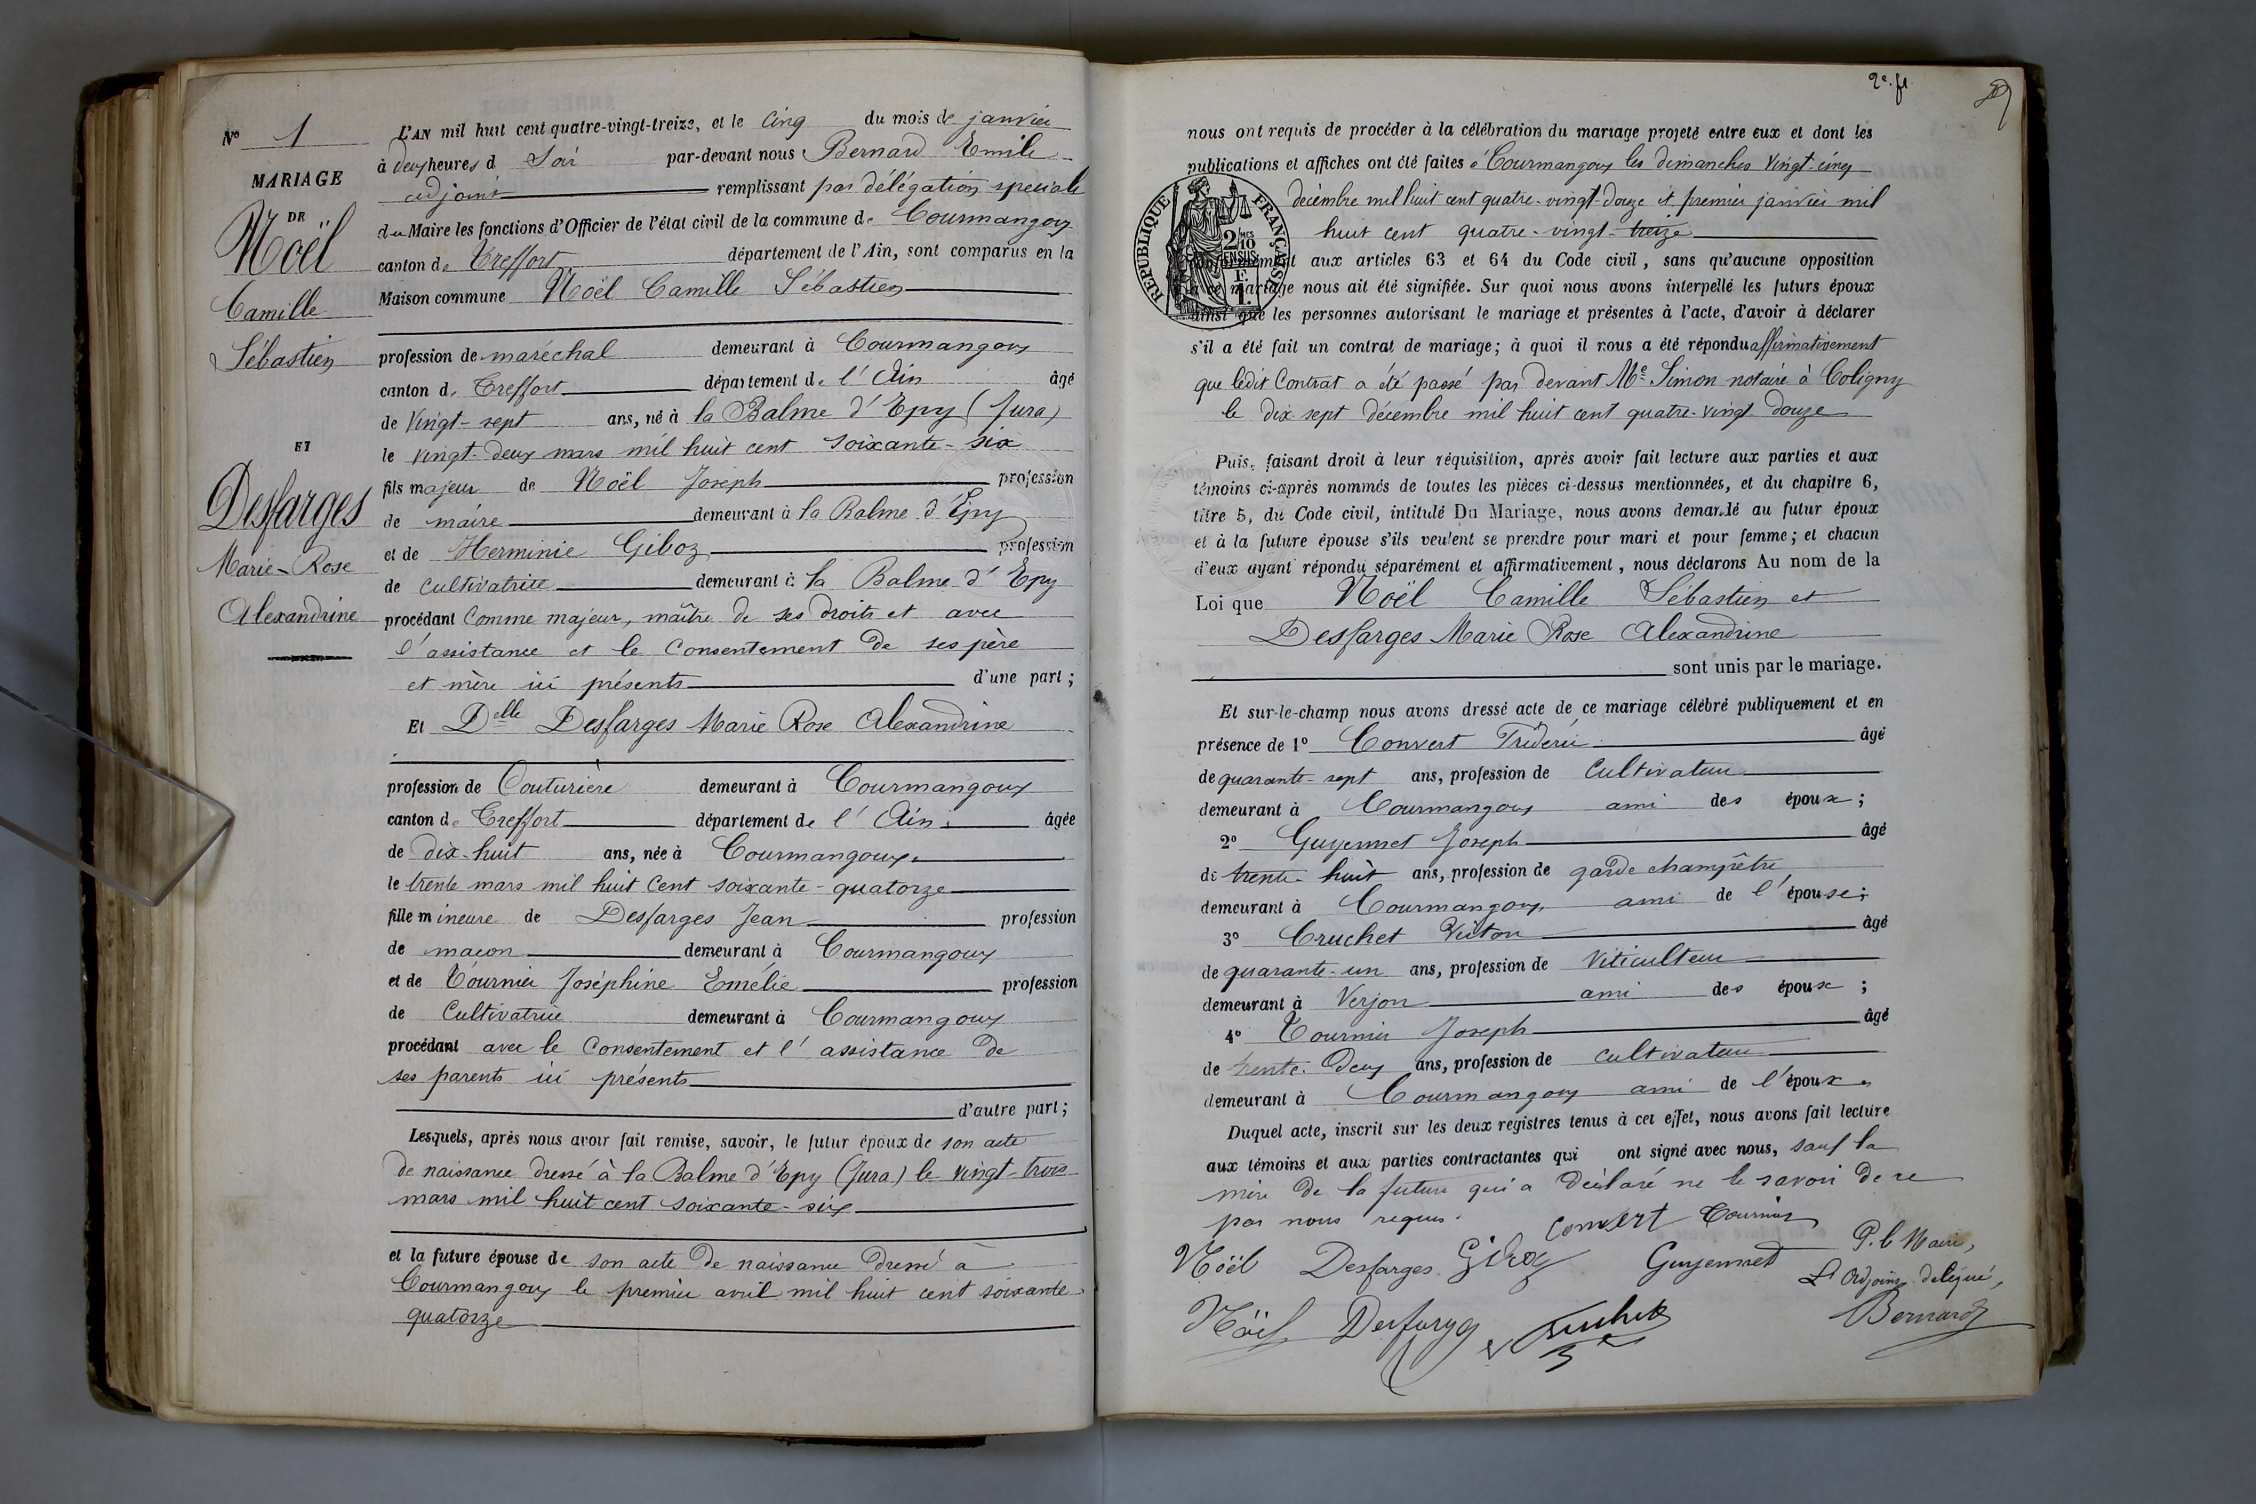 N° 1
MARIAGE
DE
Noël
Camille
Sébastien
ET
Desfarges
Marie-Rose
Alexandrine
L'AN mil huit cent quatre-vingt-treize, et le cinq du mois de janvier
à deux heures d Soir par-devant nous Bernard Emile
adjoint remplissant par délégation spéciale
du Maire les fonctions d'Officier de l'état civil de la commune de Courmangoux
canton de Treffort département de l'Ain, sont comparus en la
Maison commune Noël Camille Sébastien
profession de maréchal demeurant à Courmangoux
canton de Treffort département de l'Ain âgé
de vingt-sept ans, né à la Balme d'Epy (Jura)
le vingt-deux mars mil huit cent soixante-six
fils majeur de Noël Joseph profession
de maire demeurant à la Balme d'Epy
et de Herminie Giboz profession
de cultivatrice demeurant à la Balme d'Epy
procédant comme majeur, maître de ses droits et avec
l'assistance et le consentement de ses père
et mère ici présents d'une part ;
Et Delle Desfarges Marie Rose Alexandrine
profession de Couturière demeurant à Courmangoux
canton de Treffort département de l'Ain âgée
de dix-huit ans, née à Courmangoux
le trente mars mil huit cent soixante-quatorze
fille mineure de Desfarges Jean profession
de maçon demeurant à Courmangoux
et de Tournier Joséphine Emélie profession
de Cultivatrice demeurant à Courmangoux
procédant avec le consentement et l'assistance de
ses parents ici présents
d'autre part ;
Lesquels, après nous avoir fait remise, savoir, le futur époux de son acte
de naissance dressé à la Balme d'Epy (Jura) le vingt-trois
mars mil huit cent soixante-six
et la future épouse de son acte de naissance dressé à
Courmangoux le premier avril mil huit cent soixante
quatorze
2e. f1
nous ont requis de procéder à la célébration du mariage projeté entre eux et dont les
publications et affiches ont été faites à Courmangoux les dimanches vingt cinq
décembre mil huit cent quatre-vingt-douze et premier janvier mil
huit cent quatre-vingt-treize
RÉPUBLIQUE FRANÇAISE
2 10
EN SUS
F
1
conformément aux articles 63 et 64 du Code civil, sans qu'aucune opposition
à ce mariage nous ait été signifiée. Sur quoi nous avons interpellé les futurs époux
ainsi que les personnes autorisant le mariage et présentes à l'acte, d'avoir à déclarer
s'il a été fait un contrat de mariage ; à quoi il nous a été répondu affirmativement
que ledit Contrat a été passé par devant Me Simon notaire à Coligny
le dix sept décembre mil huit cent quatre-vingt douze
Puis, faisant droit à leur réquisition, après avoir fait lecture aux parties et aux
témoins ci-après nommés de toutes les pièces ci-dessus mentionnées, et du chapitre 6,
titre 5, du Code civil, intitulé Du Mariage, nous avons demandé au futur époux
et à la future épouse s'ils veulent se prendre pour mari et pour femme ; et chacun
d'eux ayant répondu séparément et affirmativement, nous déclarons Au nom de la
Loi que Noël Camille Sébastien et
Desfarges Marie Rose Alexandrine
sont unis par le mariage.
Et sur-le-champ nous avons dressé acte de ce mariage célébré publiquement et en
présence de 1° Convert Fréderic âgé
de quarante-sept ans, profession de cultivateur
demeurant à Courmangoux ami des époux ;
2° Guyennet Joseph âgé
de trente-huit ans, profession de garde champêtre
demeurant à Courmangoux ami de l'épouse ;
3° Cruchet Victor âgé
de quarante-un ans, profession de Viticulteur
demeurant à Verjon ami des époux ;
4° Tournier Joseph âgé
de trente-deux ans, profession de cultivateur
demeurant à Courmangoux ami de l'époux.
Duquel acte, inscrit sur les deux registres tenus à cet effet, nous avons fait lecture
aux témoins et aux parties contractantes qui ont signé avec nous, sauf la
mère de la future qui a déclaré ne le savoir de ce
par nous requis.
Convert Tournier
Noël Desfarges Giboz Guyennet P. le Maire,
L'Adjoint délégué,
Noël Desfarges Cruchet Bernard